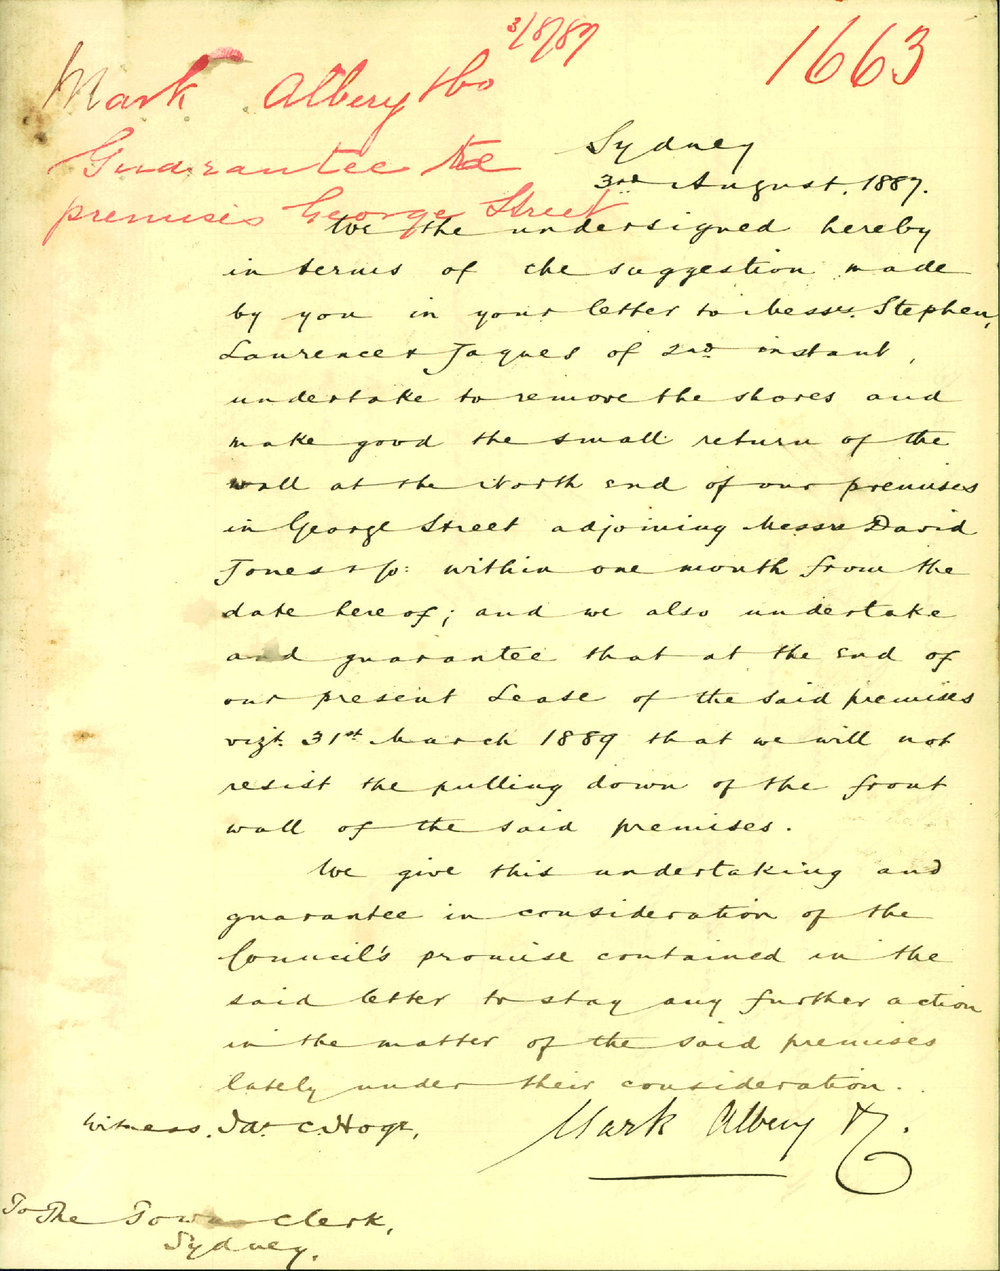 3/8/87
1663
Mark Albery & Co
Guarantee re
premises George Street
Sydney
3rd August. 1887.
We the undersigned hereby
in terms of the suggestion made
by you in your letter to Messrs. Stephen,
Laurence & Jaques of 2nd instant,
undertake to remove the shores and
make good the small return of the
wall at the North end of our premises
in George Street adjoining Messrs David
Jones & Co: within one month from the
date hereof; and we also undertake
and guarantee that at the end of
our present Lease of the said premises
vizt. 31st March 1889 that we will not
resist the pulling down of the front
wall of the said premises.
We give this undertaking and
guarantee in consideration of the
Council's promise contained in the
said letter to stay any further action
in the matter of the said premises
lately under their consideration.
Witness. Jas. C. Hogt.
Mark Albery & Co.
To The Town Clerk,
Sydney.